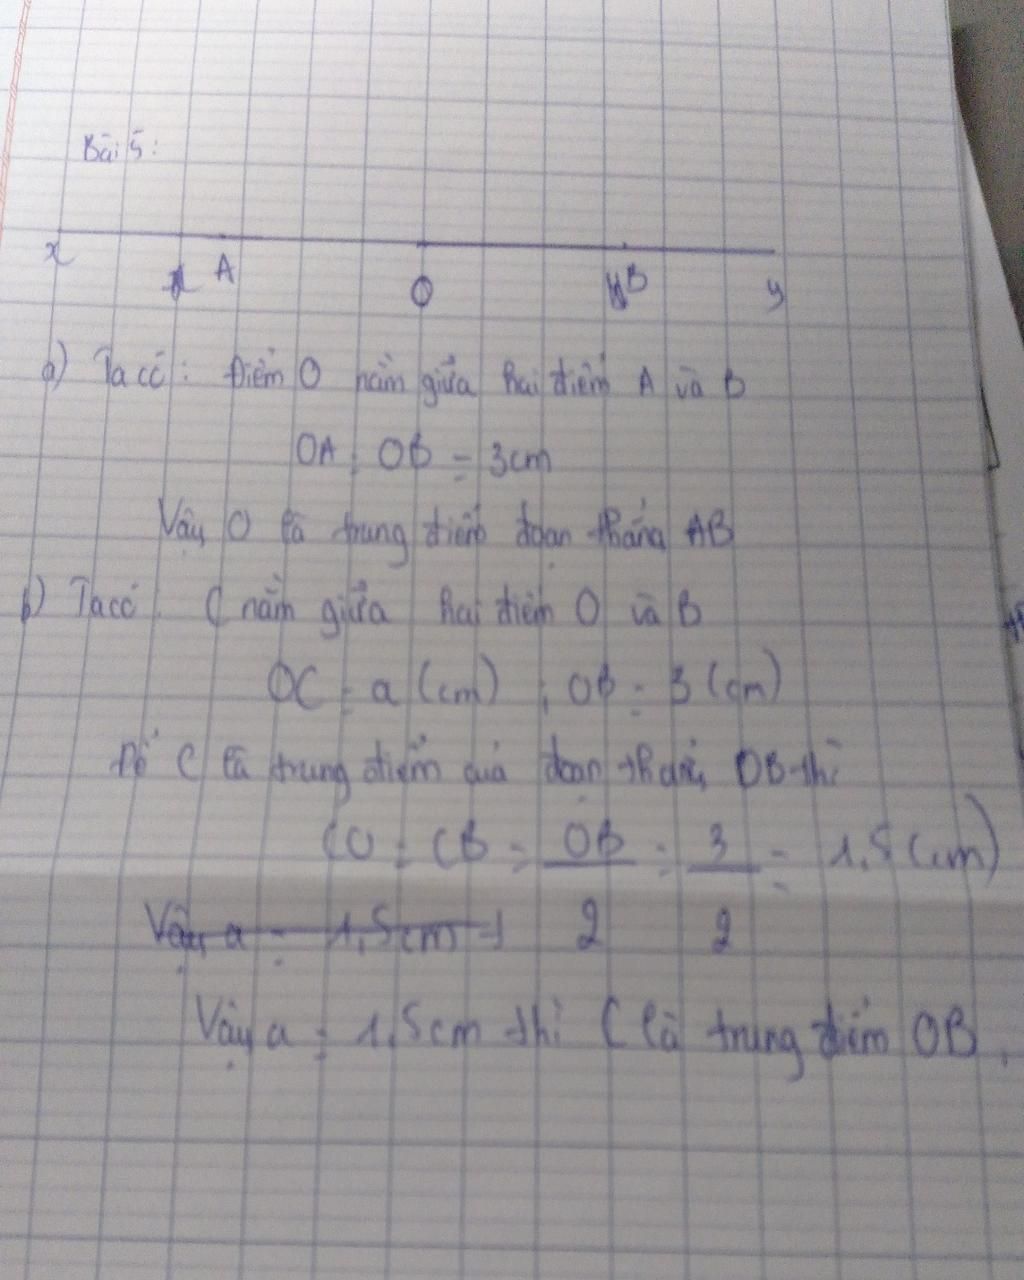 Bài 5:
x A O B y
a) Ta có: Điểm O nằm giữa hai điểm A và B
OA = OB = 3cm
Vậy O là trung điểm đoạn thẳng AB
b) Ta có: C nằm giữa hai điểm O và B
OC = a (cm) ; OB = 3 (cm)
Để C là trung điểm của đoạn thẳng OB thì
CO = CB = OB/2 = 3/2 = 1,5 (cm)
Vậy a = 1,5cm
Vậy a = 1,5cm thì C là trung điểm OB.